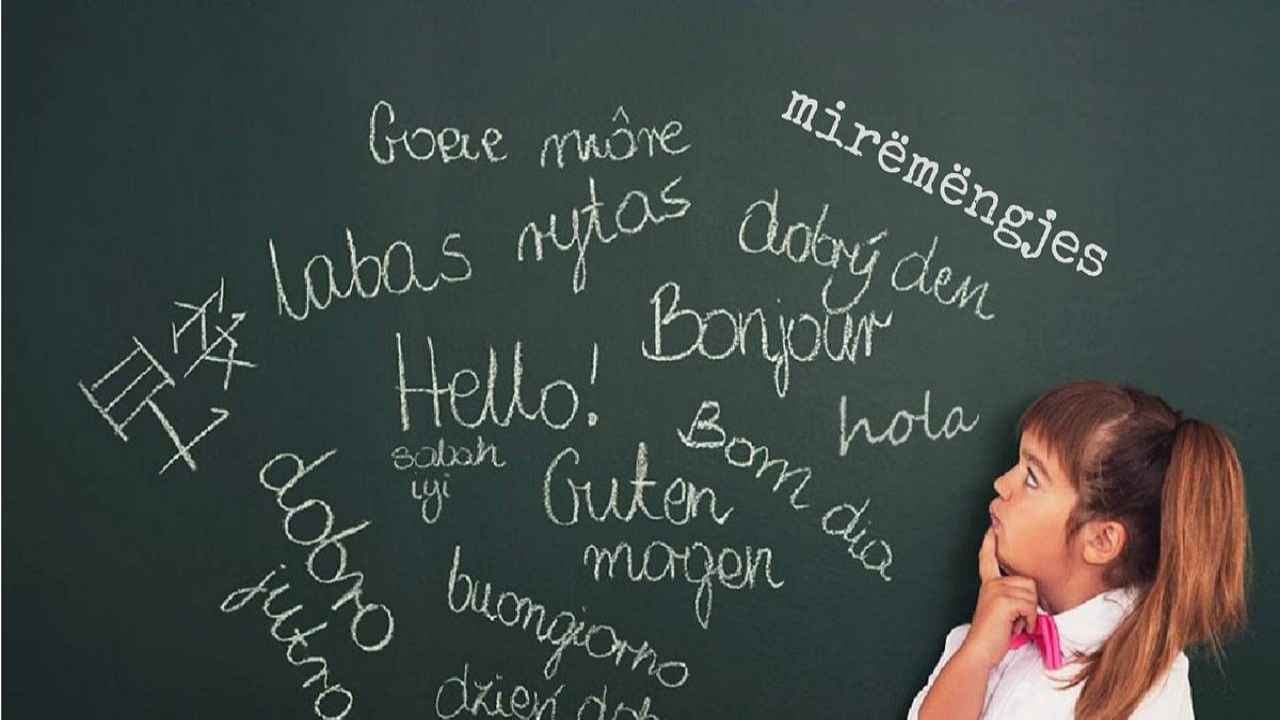 Goeie môre
mirëmëngjes
labas rytas
dobrý den
Bonjour
Hello!
hola
sabah
iyi
Bom dia
Guten
magen
dobro
jutro
buongiorno
dzień dob